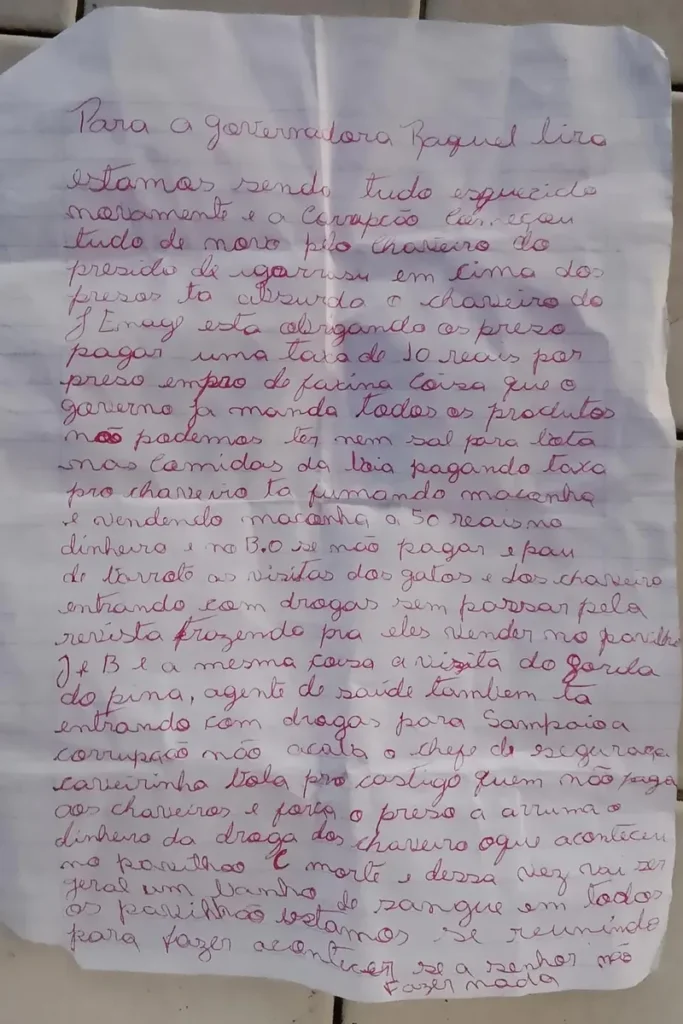 Para a governadora Raquel lira
estamos sendo tudo esquecido
novamente e a Corrupção Começou
tudo de novo pelo chaveiro do
presidio de igarrasu em cima dos
presos ta absurdo o chaveiro do
esta obrigando os preso
pagar uma taxa de 10 reais por
preso empro de faxina Coisa que o
governo ja manda todos os produtos
não podemos ter nem sal para bota
nas Comidas da boia pagando taxa
pro chaveiro ta fumando maconha
e vendendo maconha a 50 reais no
dinheiro e no B.O se não pagar e pau
de barrote as visitas dos gatos e dos chaveiro
entrando com drogas sem passar pela
revista trazendo pra eles vender no pavilho
J e B e a mesma coisa a visita do gorila
do pina, agente de saúde tambem ta
entrando com drogas para Sampaio a
corrupção não acaba o chefe de seguraça
caveirinha bota pro castigo quem não paga
aos chaveiros e força o preso a arruma o
dinheiro da droga dos chaveiro oque aconteceu
no pavilhão C morte e dessa vez vai ser
geral um banho de sangue em todos
os pavilhão estamos se reunindo
para fazer acontecer se a senhor não
fazer nada